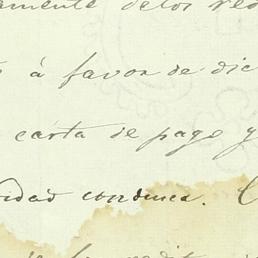 amente de los red
á favor de dic
carta de pago y
idad conduca. C